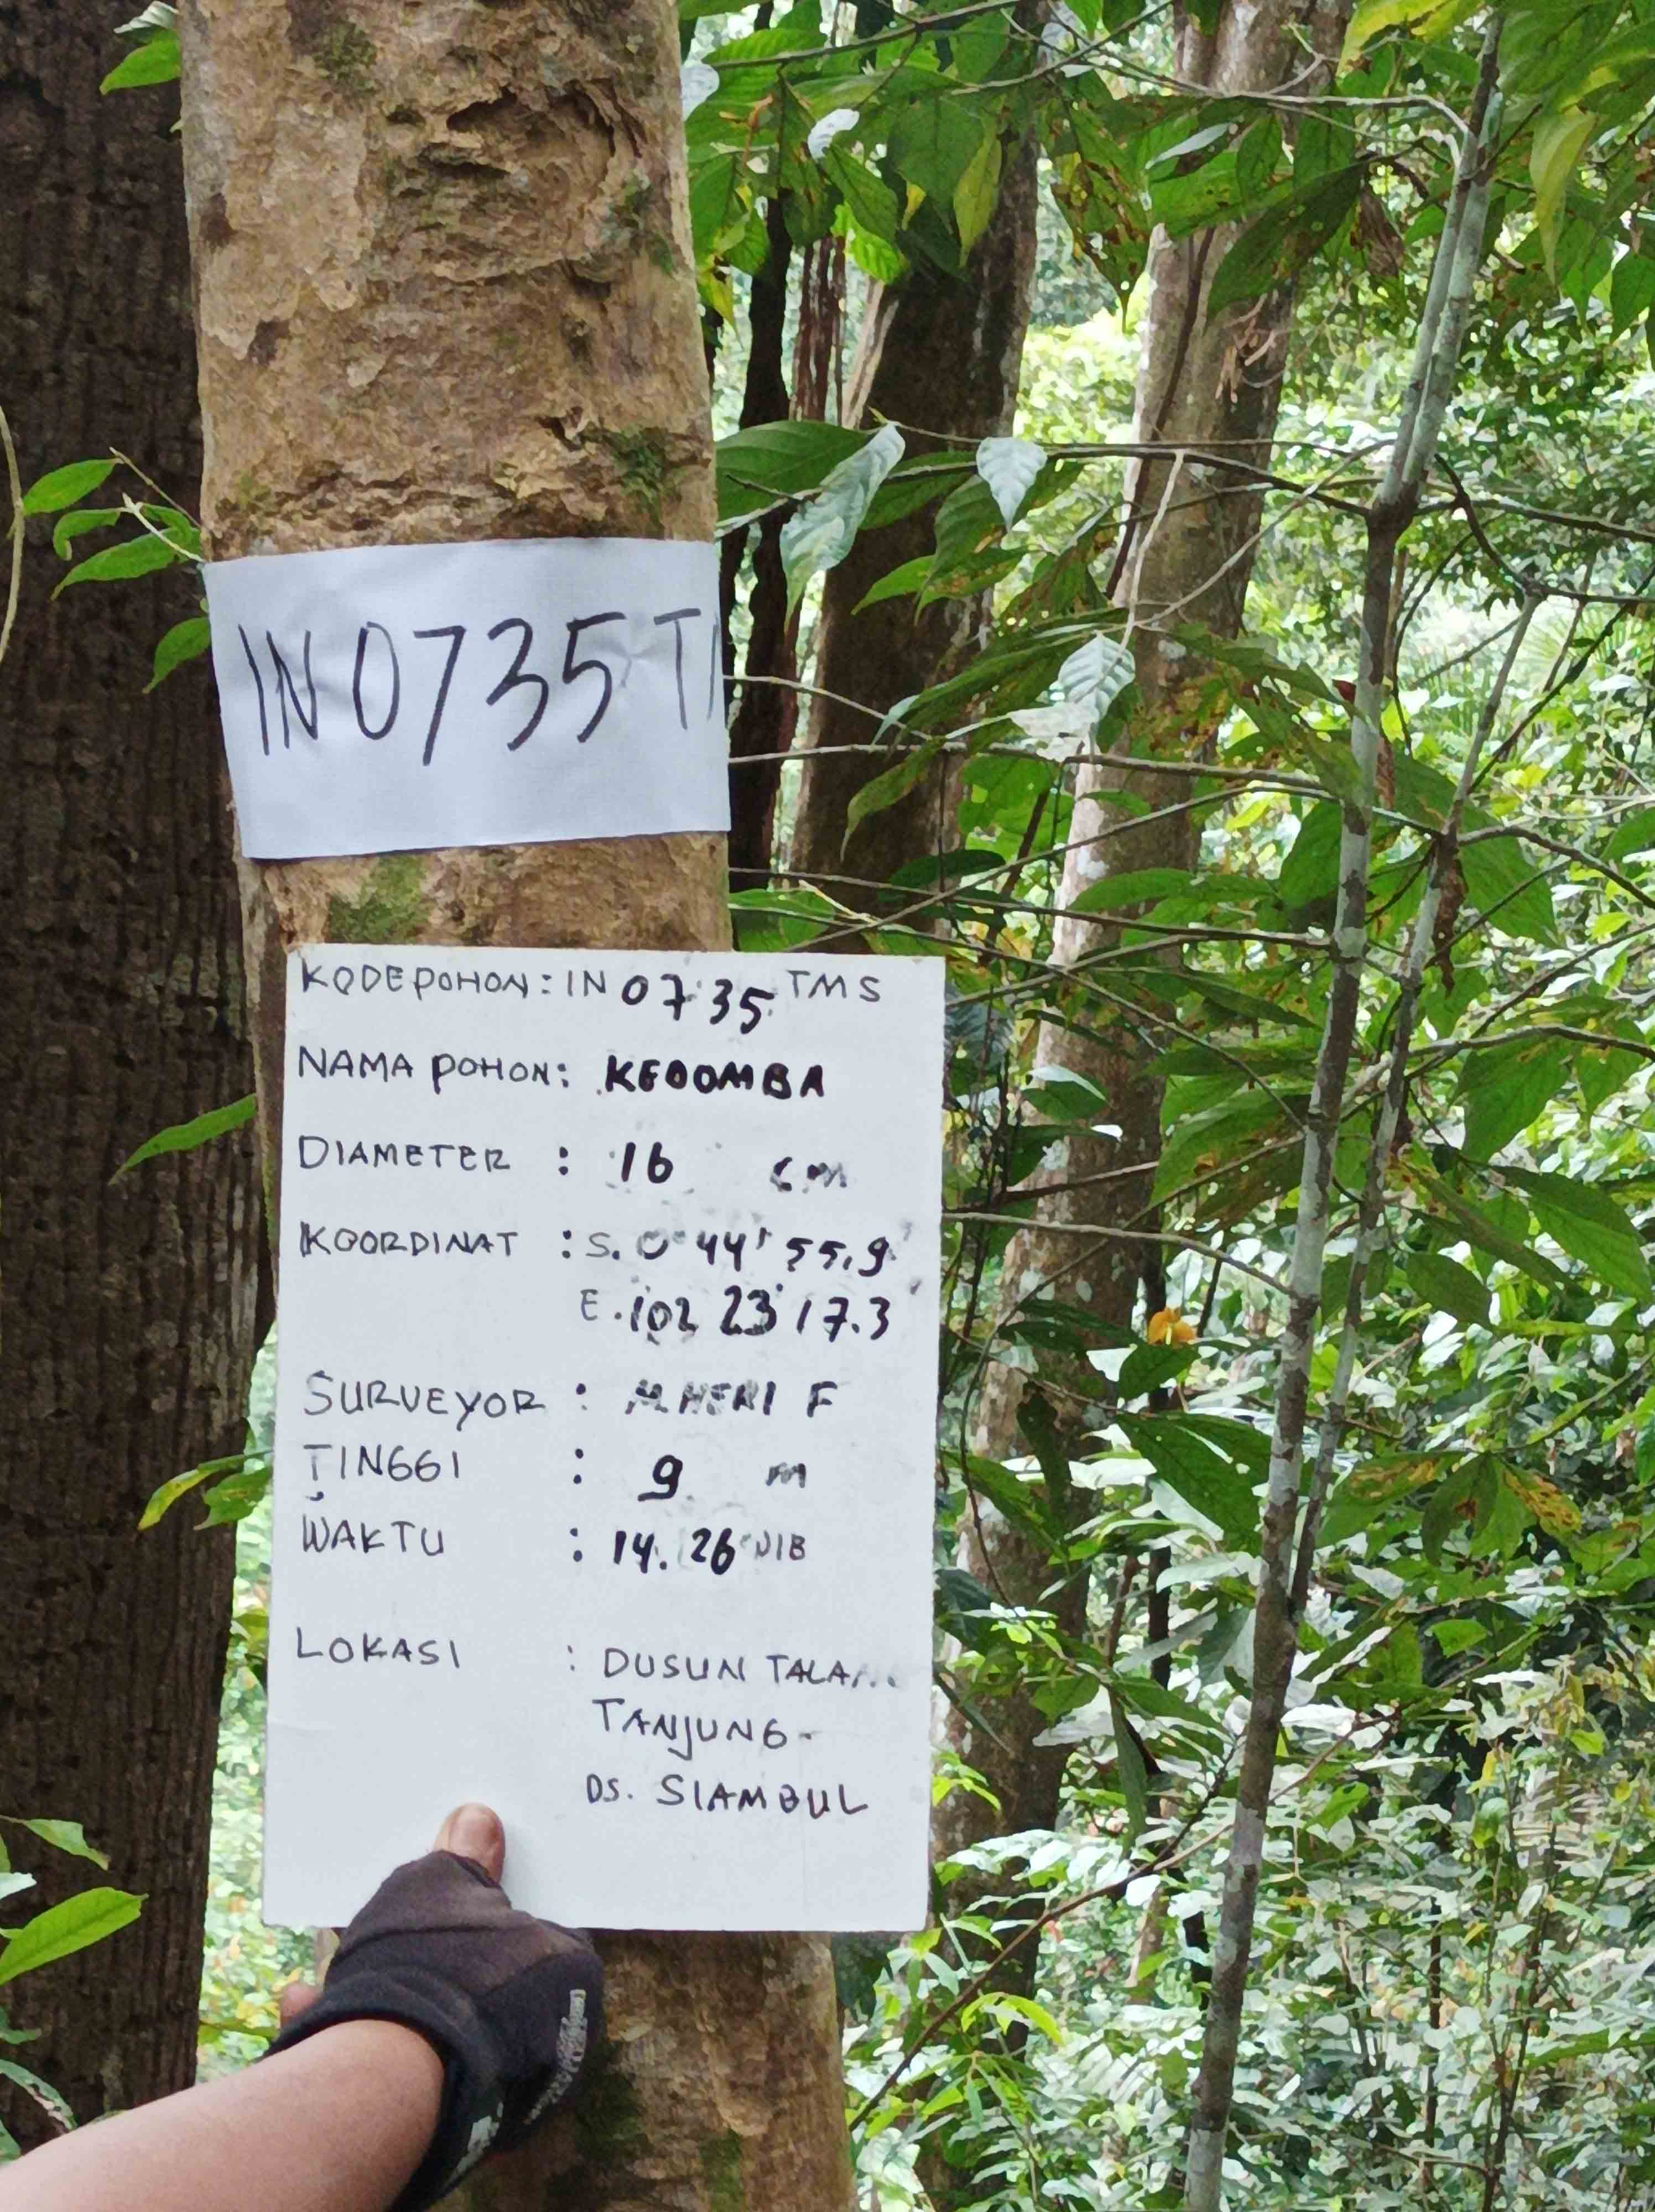 IN 0735 T
KODE POHON : IN 0735 TMS
NAMA POHON : KEDOMBA
DIAMETER : 16 cm
KOORDINAT : S. 0° 44' 55,9"
E. 102 23' 17.3"
SURVEYOR : M HERI F
TINGGI : 9 m
WAKTU : 14.26 WIB
LOKASI : DUSUN
TANJUNG
DS. SIAMBUL